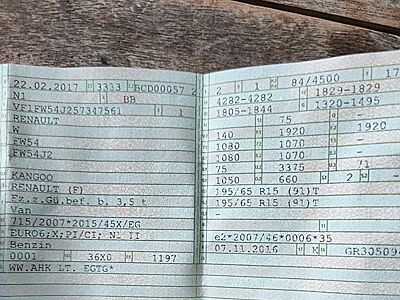 22.02.2017 3333 BCD00057 2
N1 BB
VF1FW54J257347561 1
RENAULT
W
FW54
FW54J2
KANGOO
RENAULT (F)
Fz.z.Gü.bef.b. 3,5 t
Van
715/2007*2015/45X/EG
EURO6;X;PI/CI; N1 II
Benzin
0001 36X0 1197
WW.AHK LT. EGTG*
2 1 84/4500 17
4282-4282 1829-1829
1805-1844 1320-1495
- 75 -
140 1920 1920
1080 1070 -
1080 1070 -
75 3375 71
1050 660 2 -
195/65 R15 (91)T
195/65 R15 (91)T
-
e2*2007/46*0006*35
07.11.2016 K GR305094